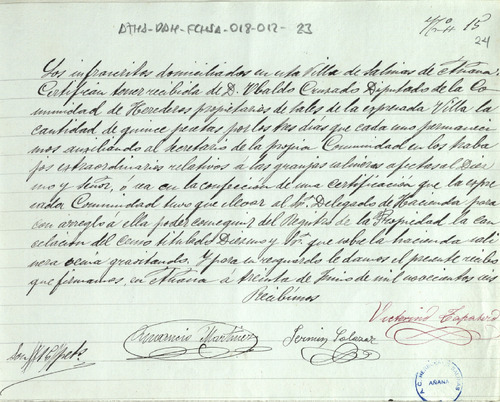 ATHA-DAH-FCHSA-018-012-23
Nº 15
24
Los infrascritos domiciliados en esta Villa de Salinas de Añana
Certifican tener recibida de D. Ubaldo Cruzado Diputado de la Co-
munidad de Herederos propietarios de Sales de la expresada Villa la
cantidad de quince pesetas por los tres dias que cada uno permaneci-
mos auxiliando al Secretario de la propia Comunidad en los traba-
jos extraordinarios relativos á las granjas salineras afectas al Diez-
mo y Señor, ó sea en la confección de una certificación que la expre-
sada Comunidad tuvo que elevar al Sr. Delegado de Hacienda para
con arreglo á ella poder conseguir del Registro de la Propiedad la can-
celacion del censo titulado Diezmo y Sr. que sobre la hacienda sali-
nera venia gravitando. Y para su resguardo le damos el presente recibo
que firmamos en Añana á treinta de Junio de mil novecientos seis
Recibimos
Victorino
Venancio Martinez
Fermin Salazar
Son // 15 pets.
AÑANA